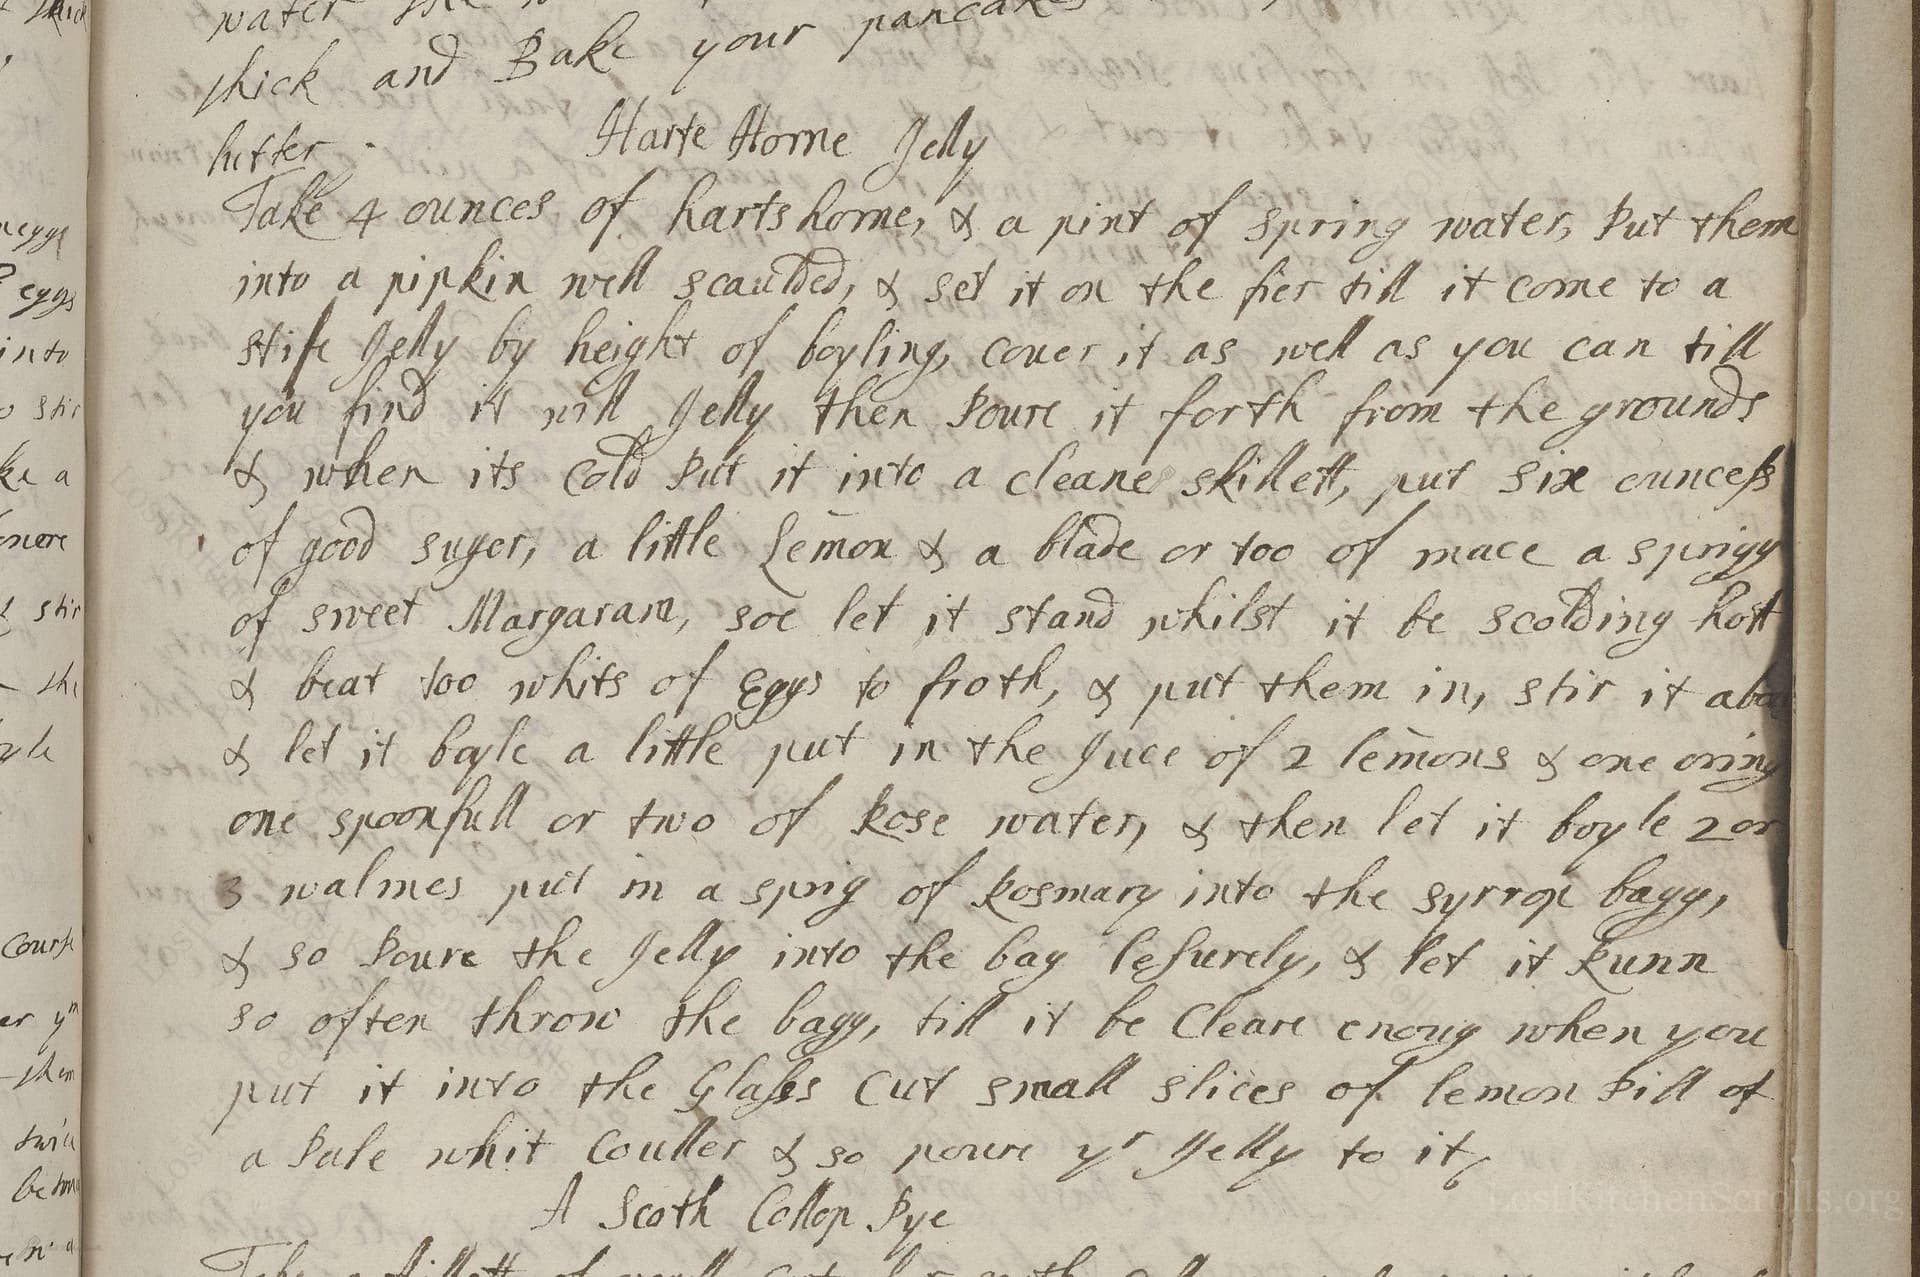 water the
thick and Bake your pancakes
butter.
Harte Horne Jelly
Take 4 ounces of hartshorne, & a pint of spring water, Put them
into a pipkin well scaulded, & set it on the fier till it come to a
stife Jelly by height of boyling, couer it as well as you can till
you find it will Jelly then Poure it forth from the grounds
& when its Cold Put it into a cleane skillett, put six ouncess
of good suger, a little Lemon & a blade or too of mace a sprigg
of sweet Margaram, soe let it stand whilst it be scolding hott
& beat too whits of Eggs to froth, & put them in, stir it abou
& let it boyle a little put in the Juce of 2 lemons & one oring
one spoonfull or two of Rose water, & then let it boyle 2 or
3 walmes put in a sprig of Rosmary into the syrrop bagg,
& so Poure the Jelly into the bag lesurely, & let it Runn
so often throw the bagg, till it be Cleare enoug when you
put it into the Glass Cut small slices of lemon Pill of
a Pale whit Couller & so poure yr Jelly to it
A Scoth Collop Pye
eggs
into
stir
ke a
& stir
the
Course
them
twice
LostKitchenScrolls.org